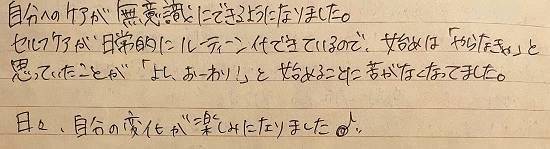 自分へのケアが無意識にできるようになりました。
セルフケアが日常的にルーティーン化できているので、始めは「やらなきゃ」と
思っていたことが「よし、おーわり!」と始めることに苦がなくなってました。
日々、自分の変化が楽しみになりました